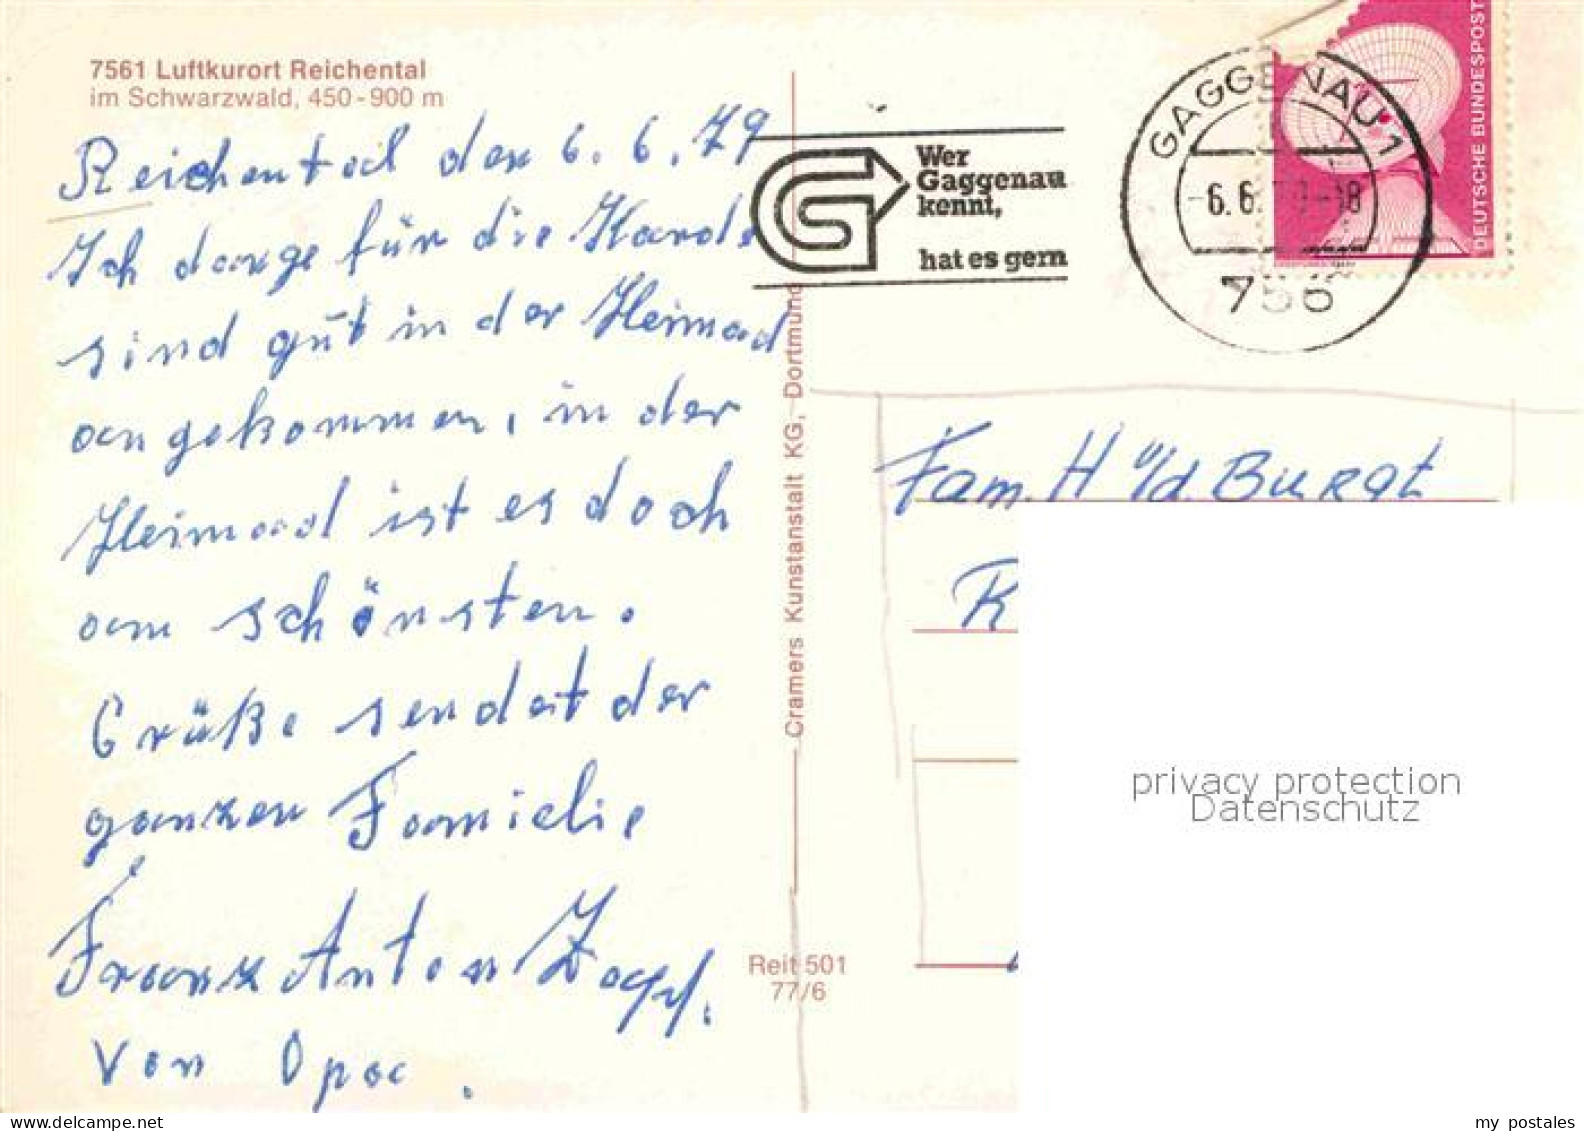 7561 Luftkurort Reichental
im Schwarzwald, 450-900 m
Reichental den 6. 6. 79
Ich dange für die Karde
sind gut in der Heimad
angekommen, in der
Heimad ist es doch
am schönsten.
Grüße sendet der
ganzen Familie
Franz Anton Zapf.
von Opa.
Cramers Kunstanstalt KG, Dortmund
Reit 501
77/6
Wer
Gaggenau
kennt,
hat es gern
GAGGENAU 1
-6.6.79-18
756
DEUTSCHE BUNDESPOST
Fam. H v/d. BURGt
R
privacy protection
Datenschutz
www.delcampe.net
my postales